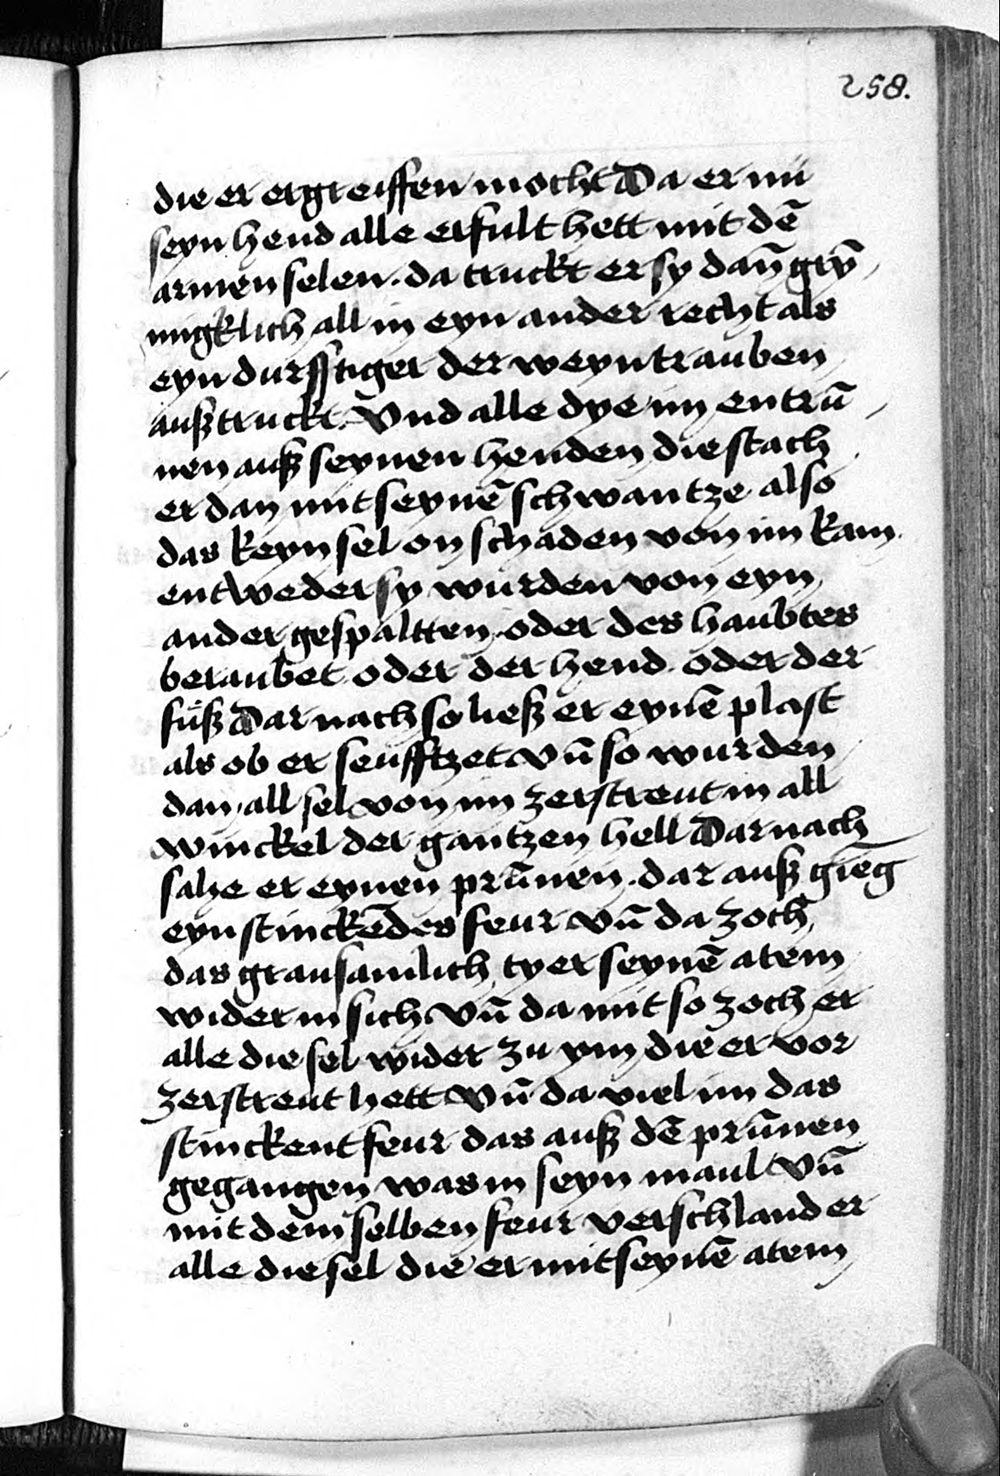 258.
die er ergreiffen mocht Da er nu
seyn hend alle erfult hett mit dē
armen selen. da truckt er sy dañ gry̅
migklich all in eyn ander recht als
eyn durfftiger der weyntrauben
außtruckt. Vnd alle dye im entrū
nen auß seynen henden die stach
er dan mit seynē schwantze also
das keyn sel on schaden von im kam.
entweder sy wurden von eyn
ander gespaltten oder des haubtes
beraubet oder der hend. oder der
fuß Darnach so ließ er eynē plast
als ob er seufftzet vn̄ so wurden
dan all sel von im zerstreut in all
winckel der gantzen hell Darnach
sahe er eynen prūnen. dar auß gieng
eyn stinckēdes feur vn̄ da zoch
das grausamlich tyer seynē atem
wider in sich Vn̄ da mit so zoch er
alle die sel wider zu ym die er vor
zerstreut hett Vn̄ da viel im das
stinckent feur das auß dē prūnen
gegangen was in seyn maul Vn̄
mit dem selben feur verschland er
alle die sel die er mit seynē atem